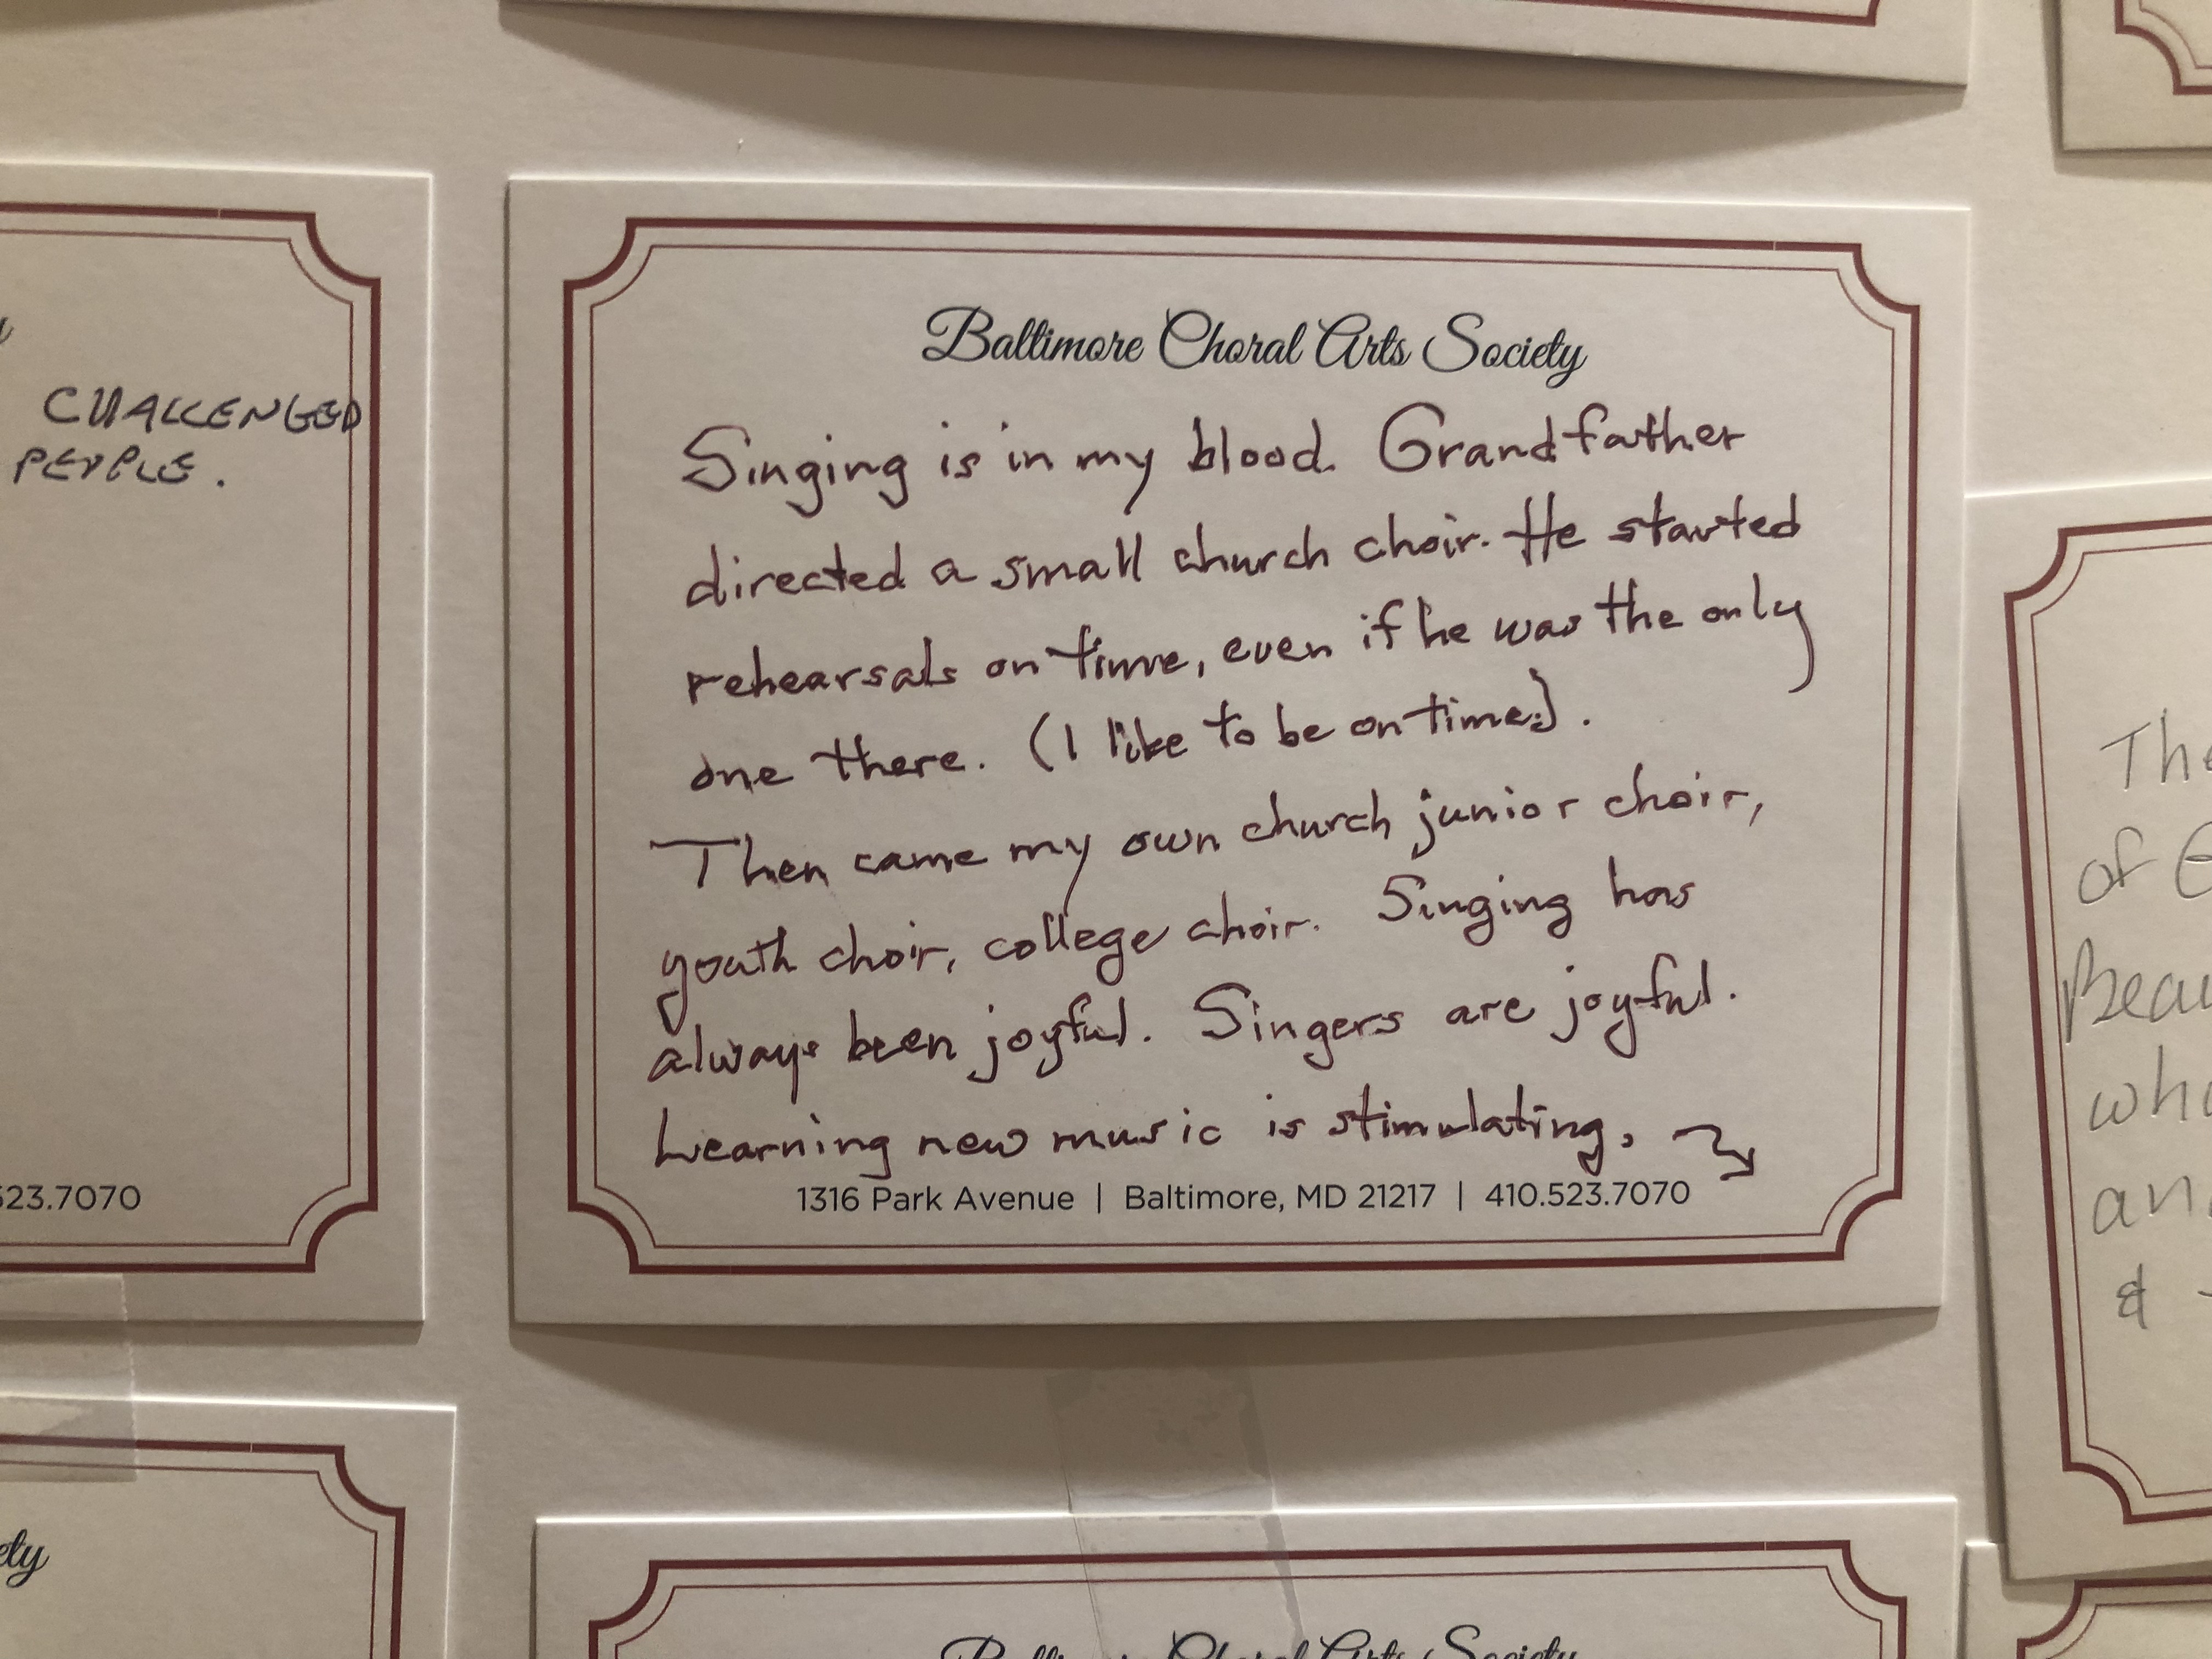 CHALLENGED
PEOPLE.
523.7070
Baltimore Choral Arts Society
Singing is in my blood. Grandfather
directed a small church choir. He started
rehearsals on time, even if he was the only
one there. (I like to be on time.).
Then came my own church junior choir,
youth choir, college choir. Singing has
always been joyful. Singers are joyful.
Learning new music is stimulating.
1316 Park Avenue | Baltimore, MD 21217 | 410.523.7070
of
&
Baltimore Choral Arts Society